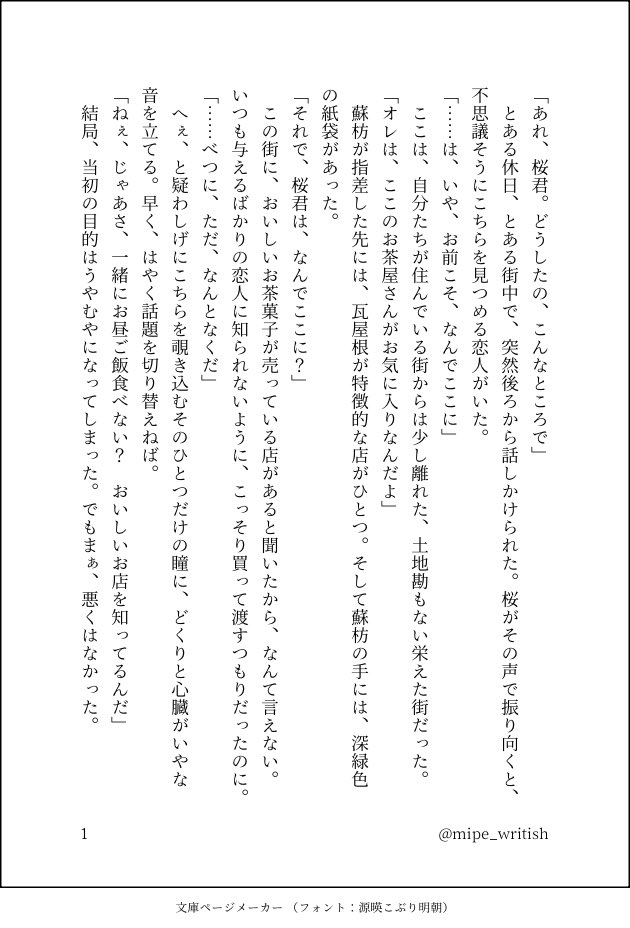 「あれ、桜君。どうしたの、こんなところで」
　とある休日、とある街中で、突然後ろから話しかけられた。桜がその声で振り向くと、
不思議そうにこちらを見つめる恋人がいた。
「……は、いや、お前こそ、なんでここに」
　ここは、自分たちが住んでいる街からは少し離れた、土地勘もない栄えた街だった。
「オレは、ここのお茶屋さんがお気に入りなんだよ」
　蘇枋が指差した先には、瓦屋根が特徴的な店がひとつ。そして蘇枋の手には、深緑色
の紙袋があった。
「それで、桜君は、なんでここに？」
　この街に、おいしいお茶菓子が売っている店があると聞いたから、なんて言えない。
いつも与えるばかりの恋人に知られないように、こっそり買って渡すつもりだったのに。
「……べつに、ただ、なんとなくだ」
　へぇ、と疑わしげにこちらを覗き込むそのひとつだけの瞳に、どくりと心臓がいやな
音を立てる。早く、はやく話題を切り替えねば。
「ねぇ、じゃあさ、一緒にお昼ご飯食べない？　おいしいお店を知ってるんだ」
　結局、当初の目的はうやむやになってしまった。でもまぁ、悪くはなかった。
1
@mipe_writish
文庫ページメーカー（フォント：源暎こぶり明朝）